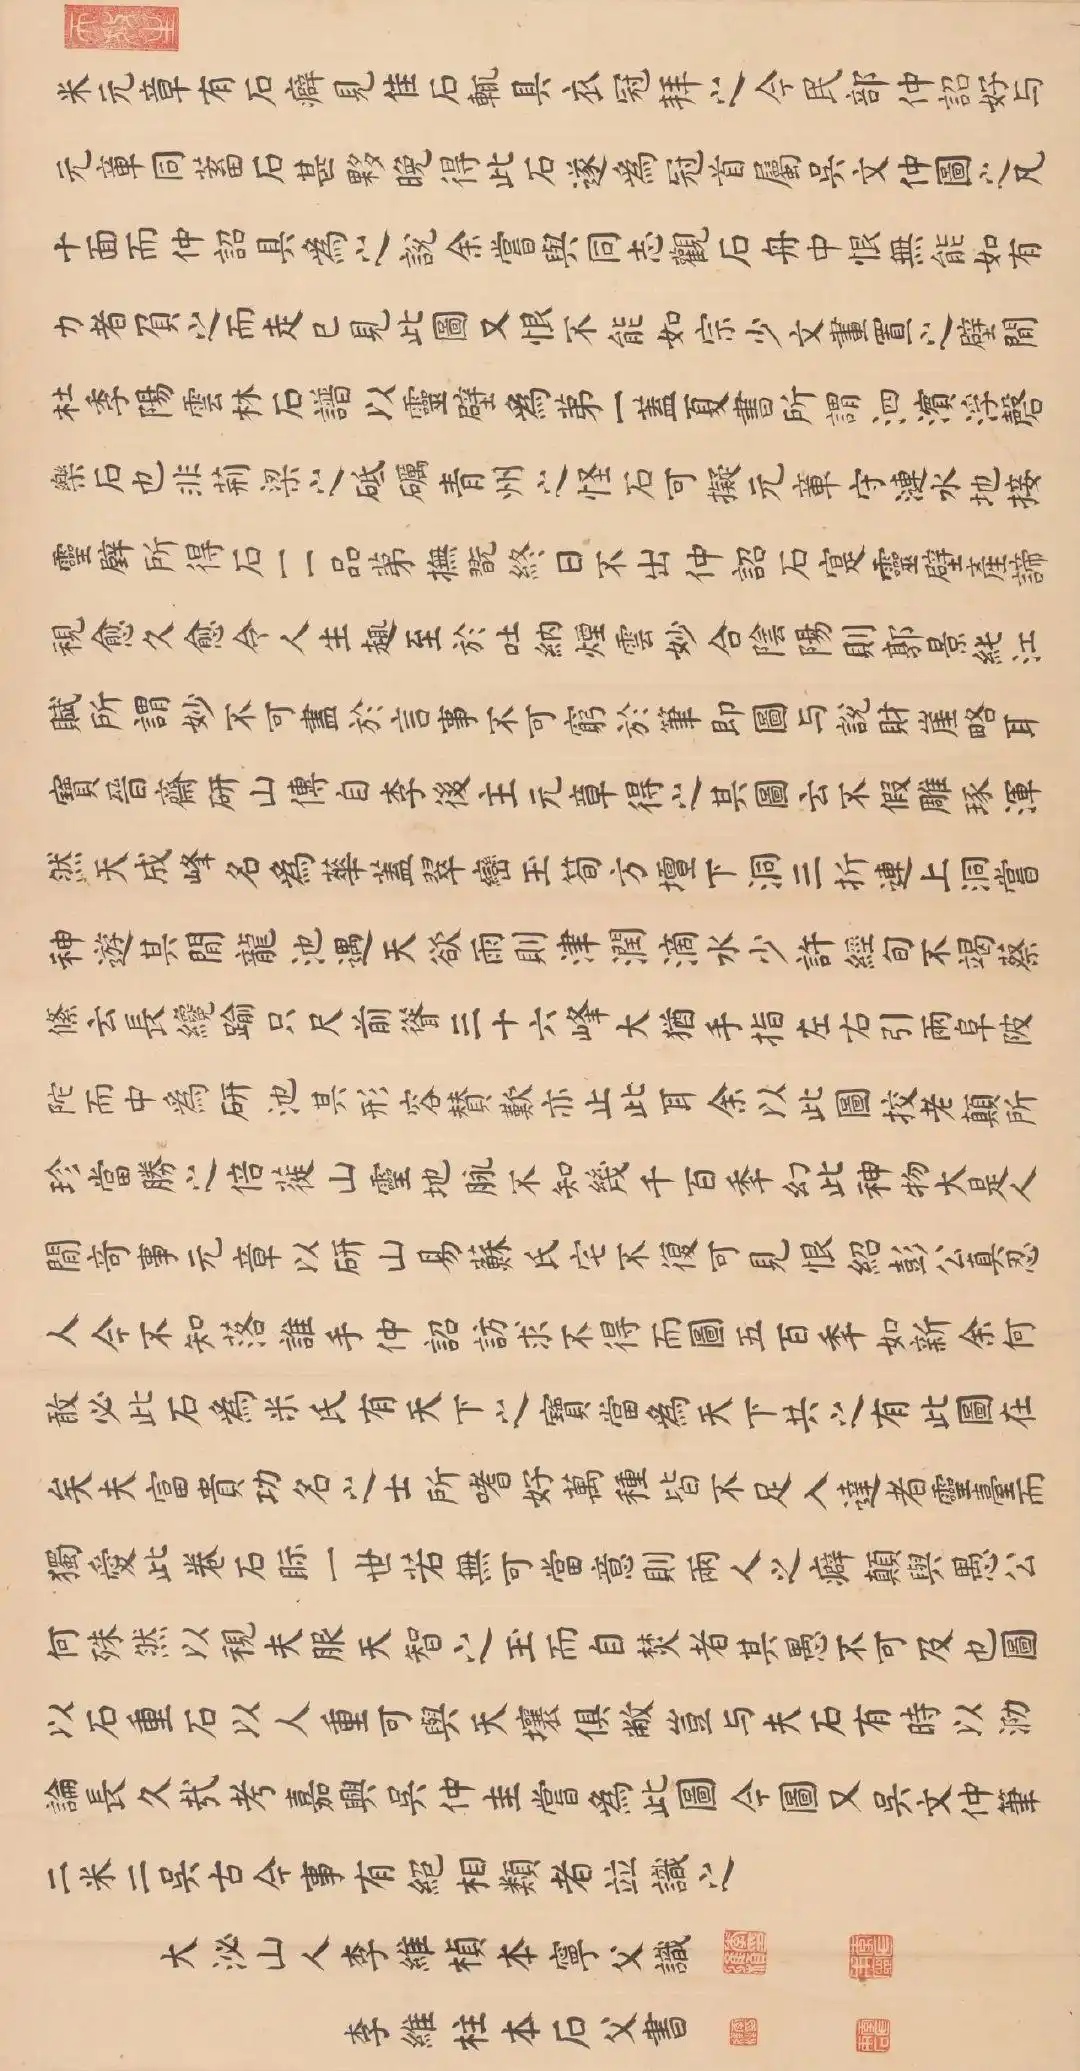 米元章有石癖見佳石輒具衣冠拜之今民部仲詔好与
元章同蓄石甚夥晚得此石遂為冠首屬吳文仲圖之凡
十面而仲詔具為之說余嘗與同志觀石舟中恨無能如有
力者負之而走已見此圖又恨不能如宗少文畫置之壁間
杜季陽雲林石譜以靈璧為第一蓋夏書所謂泗濱浮磬
樂石也非荊梁之砥礪青州之怪石可擬元章守漣水地接
靈璧所得石一一品第撫翫終日不出仲詔石寔靈璧產諦
視愈久愈令人生趣至於吐納煙雲妙合陰陽則郭景純江
賦所謂妙不可盡於言事不可窮於筆即圖与說財崖略耳
寶晉齋研山傳自李後主元章得之其圖云不假雕琢渾
然天成峰名為華蓋翠巒玉筍方壇下洞三折連上洞嘗
神遊其間龍池遇天欲雨則津潤滴水少許經旬不竭蔡
絛云長纔踰只尺前聳三十六峰大猶手指左右引兩阜陂
陀而中為研池其形容贊歎亦止此耳余以此圖挍老顛所
珍當勝之倍蓰山靈地脉不知幾千百秊幻此神物大是人
間奇事元章以研山易蘇氏宅不復可見恨紹彭公真忍
人今不知落誰手仲詔訪求不得而圖五百秊如新余何
敢必此石為米氏有天下之寶當為天下共之有此圖在
矣夫富貴功名之士所嗜好萬種皆不足入達者靈臺而
獨愛此卷石眎一世若無可當意則兩人之癖顛與愚公
何殊然以視夫服天智之玉而自焚者其愚不可及也圖
以石重石以人重可與天壤俱敝豈与夫石有時以泐
論長久哉考嘉興吳仲圭嘗為此圖今圖又吳文仲筆
二米二吳古今事有絕相類者竝識之
大泌山人李維楨本寧父識
李維柱本石父書